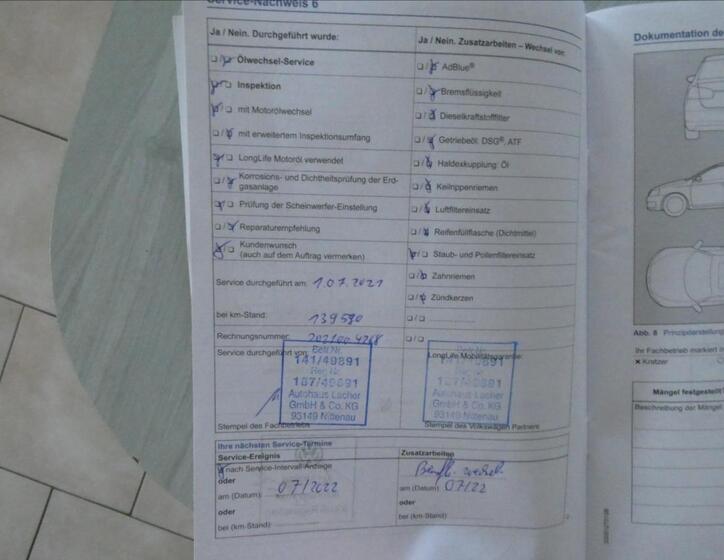 Service-Nachweis 6
Ja / Nein. Durchgeführt wurde:
Ölwechsel-Service
Inspektion
mit Motorölwechsel
mit erweitertem Inspektionsumfang
LongLife Motoröl verwendet
Korrosions- und Dichtheitsprüfung der Erd-
gasanlage
Prüfung der Scheinwerfer-Einstellung
Reparaturempfehlung
Kundenwunsch
(auch auf dem Auftrag vermerken)
Service durchgeführt am: 1.07.2021
bei km-Stand: 139590
Rechnungsnummer:
Service durchgeführt von:
Betr.Nr.
141/49891
Reg.Nr.
187/49891
Autohaus Lacher
GmbH & Co. KG
93149 Nittenau
Stempel des Fachbetriebs
Ja / Nein. Zusatzarbeiten – Wechsel von:
AdBlue®
Bremsflüssigkeit
Dieselkraftstofffilter
Getriebeöl: DSG®, ATF
Haldexkupplung: Öl
Keilrippenriemen
Luftfiltereinsatz
Reifenfüllflasche (Dichtmittel)
Staub- und Pollenfiltereinsatz
Zahnriemen
Zündkerzen
LongLife Mobilitätsgarantie:
Autohaus Lacher
GmbH & Co. KG
93149 Nittenau
Stempel des Volkswagen Partners
Ihre nächsten Service-Termine
Service-Ereignis
nach Service-Intervall-Anzeige
oder
am (Datum) 07/2022
oder
bei (km-Stand)
Zusatzarbeiten
am (Datum) 07/22
oder
bei (km-Stand)
Dokumentation de
Abb. 8 Prinzipdarstellung
Ihr Fachbetrieb markiert in
× Kratzer
Mängel festgestellt
Beschreibung der Mängel